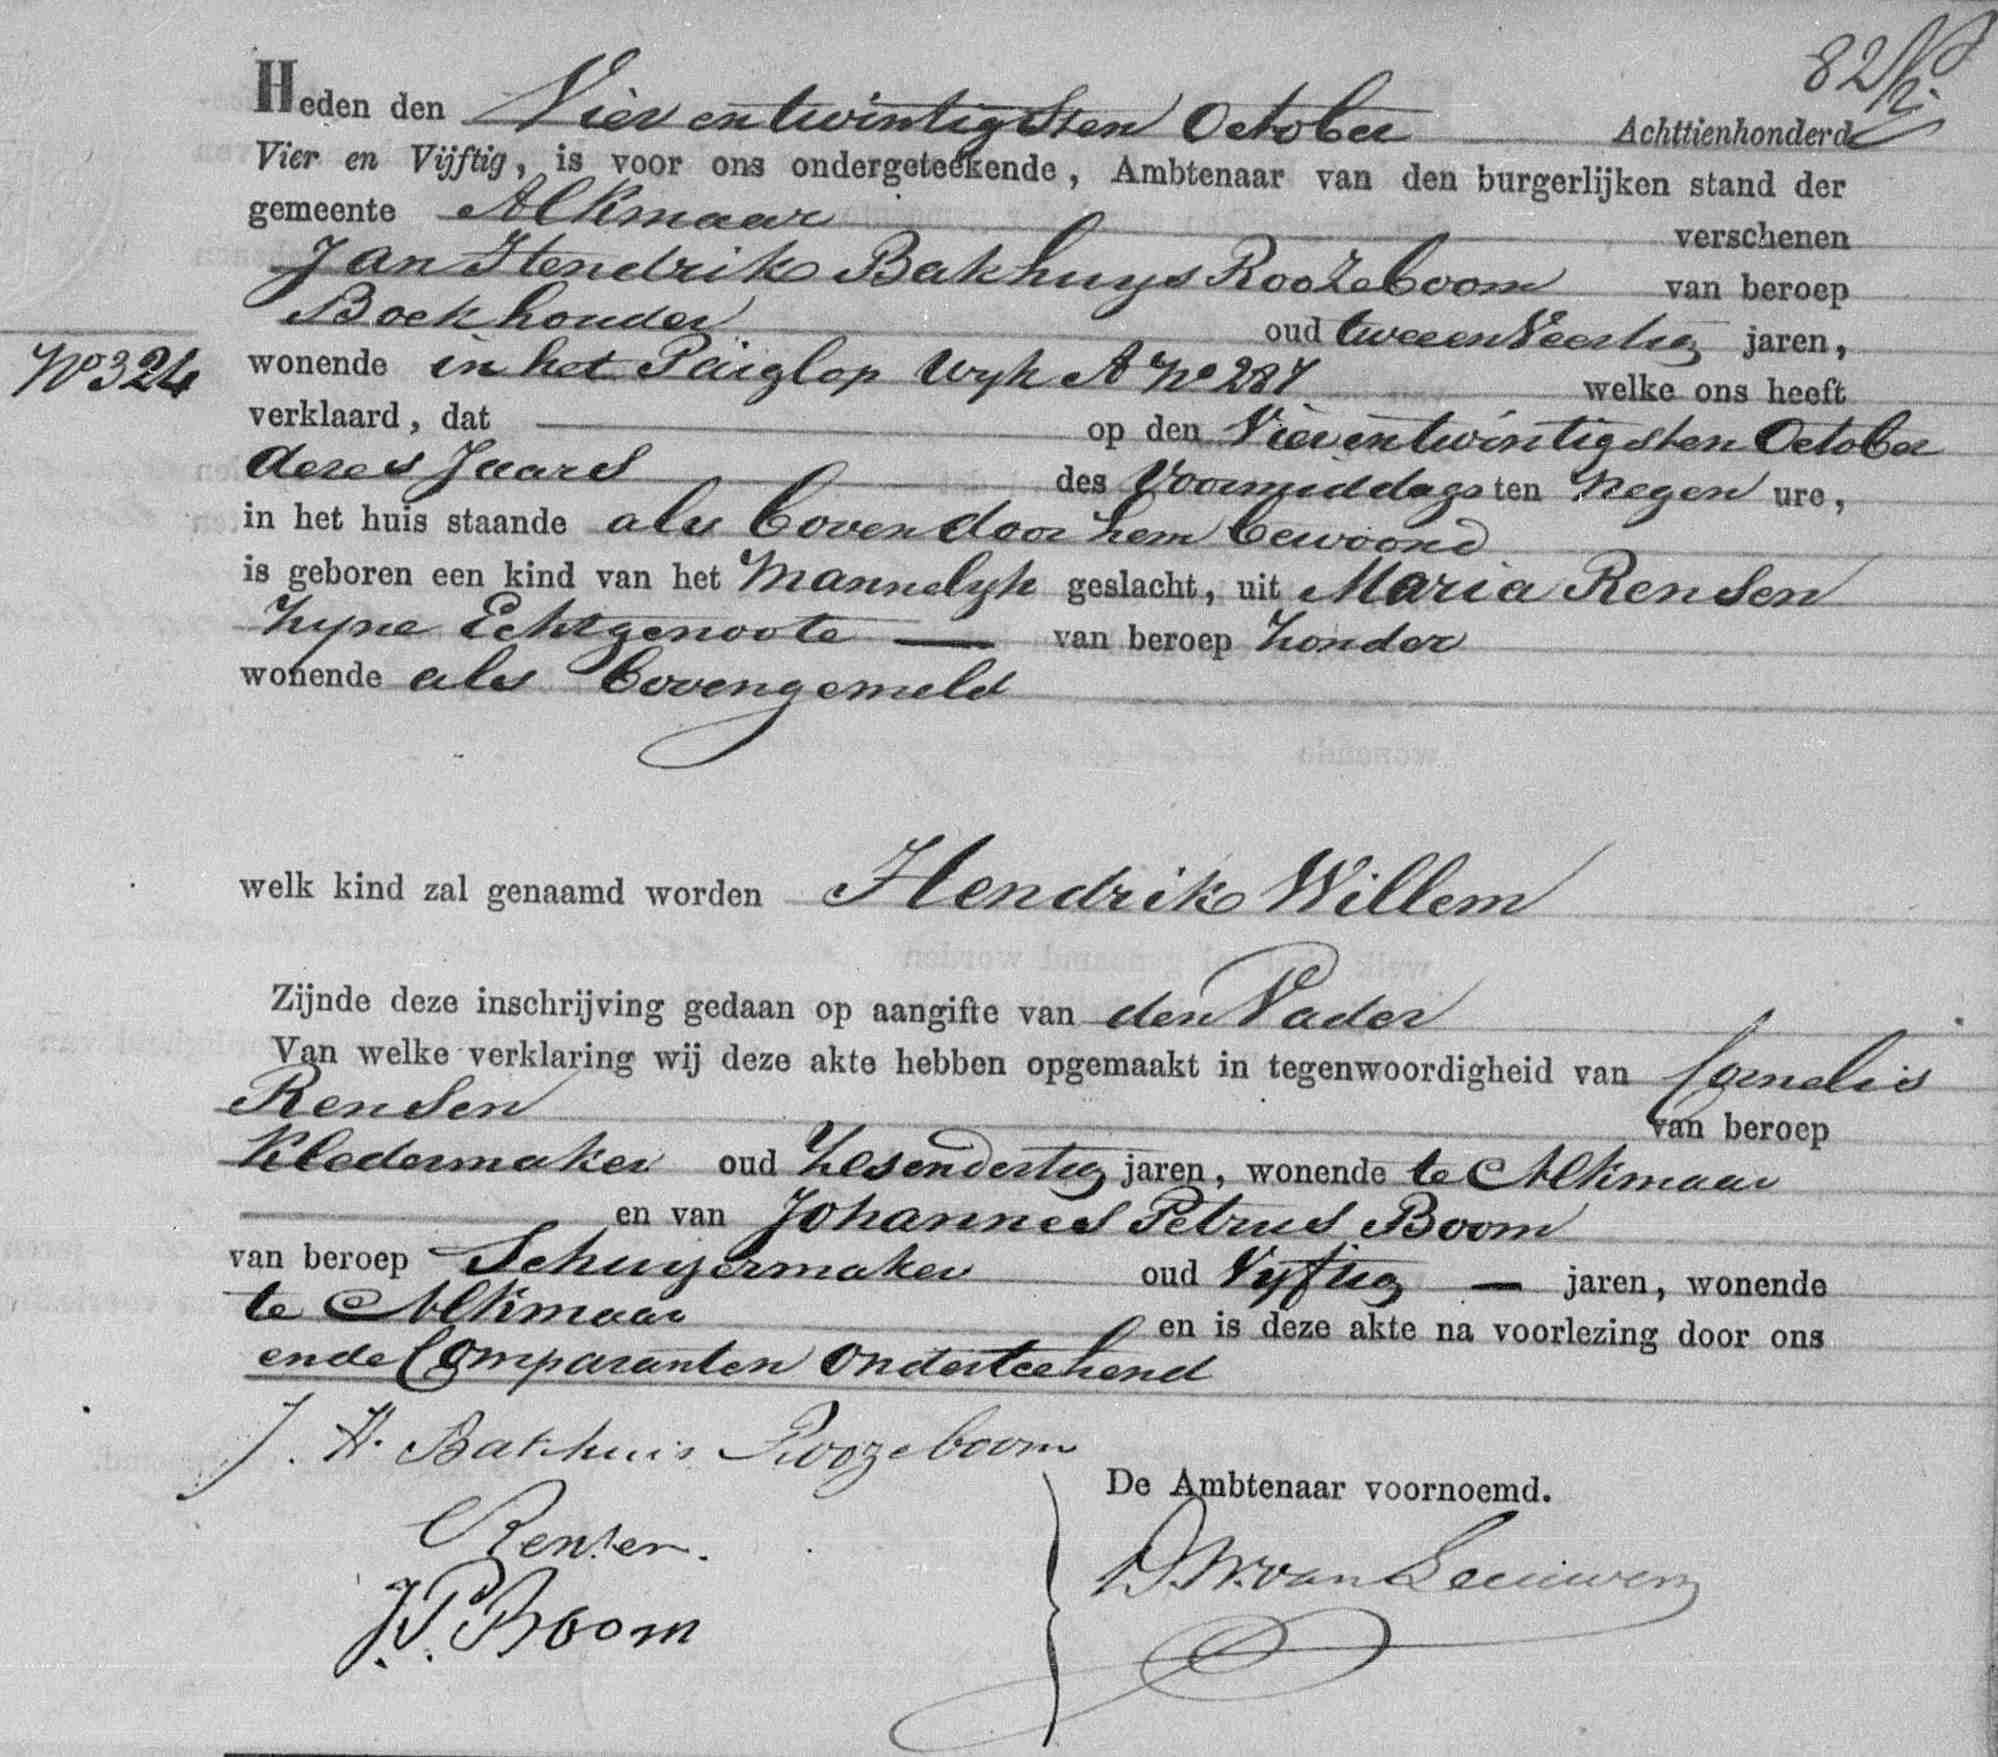 82
Heden den Vier en twintigsten October Achttienhonderd
Vier en Vijftig, is voor ons ondergeteekende, Ambtenaar van den burgerlijken stand der
gemeente Alkmaar verschenen
Jan Hendrik Bakhuys Roozeboom van beroep
Boekhouder oud tweeenVeertig jaren,
No 324
wonende in het Paiglop Wyk A No 287 welke ons heeft
verklaard, dat op den Vierentwintigsten October
dezes Jaars des Voormiddags ten Negen ure,
in het huis staande als boven door hem bewoond
is geboren een kind van het Mannelyk geslacht, uit Maria Rensen
Zyne Echtgenoote van beroep Zonder
wonende als bovengemeld
welk kind zal genaamd worden Hendrik Willem
Zijnde deze inschrijving gedaan op aangifte van den Vader
Van welke verklaring wij deze akte hebben opgemaakt in tegenwoordigheid van Cornelis
Rensen van beroep
Kledermaker oud Zesendertig jaren, wonende te Alkmaar
en van Johannes Petrus Boom
van beroep Schuijermaker oud Vyftig jaren, wonende
te Alkmaar en is deze akte na voorlezing door ons
ende Comparanten onderteekend
J. H. Bakhuis Roozeboom
De Ambtenaar voornoemd.
C Rensen.
J. P. Boom
van Leeuwen